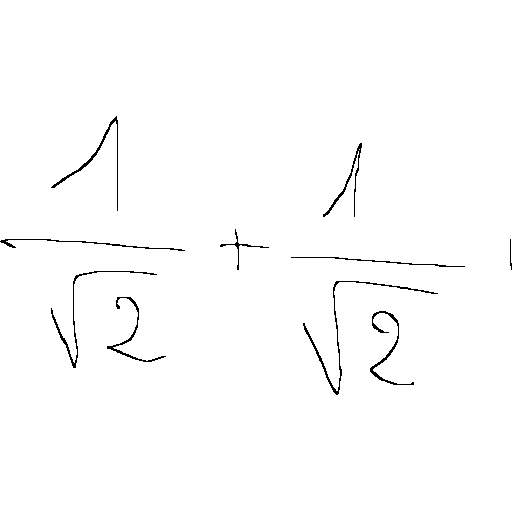 \frac{1}{\sqrt{2}} + \frac{1}{\sqrt{2}}